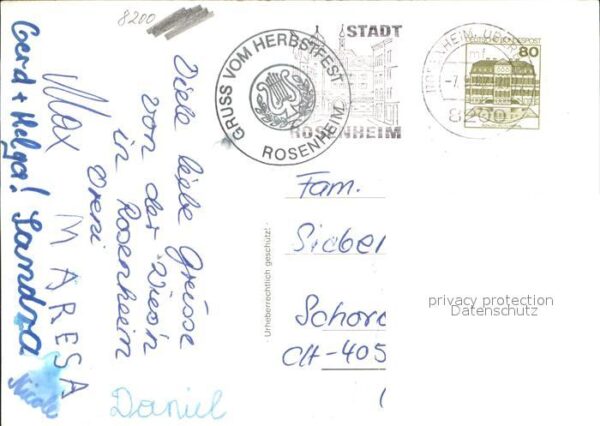 8200
Viele liebe Grüsse
von der Wies'n
in Rosenheim
Vreni
Max
MARESA
Gerd + Helga! Sandra
Nicole
Daniel
GRUSS VOM HERBSTFEST
ROSENHEIM
STADT
ROSENHEIM
DEUTSCHE BUNDESPOST
80
8200
Fam.
Sieber
Schor
CH-405
Urheberrechtlich geschützt!
privacy protection
Datenschutz